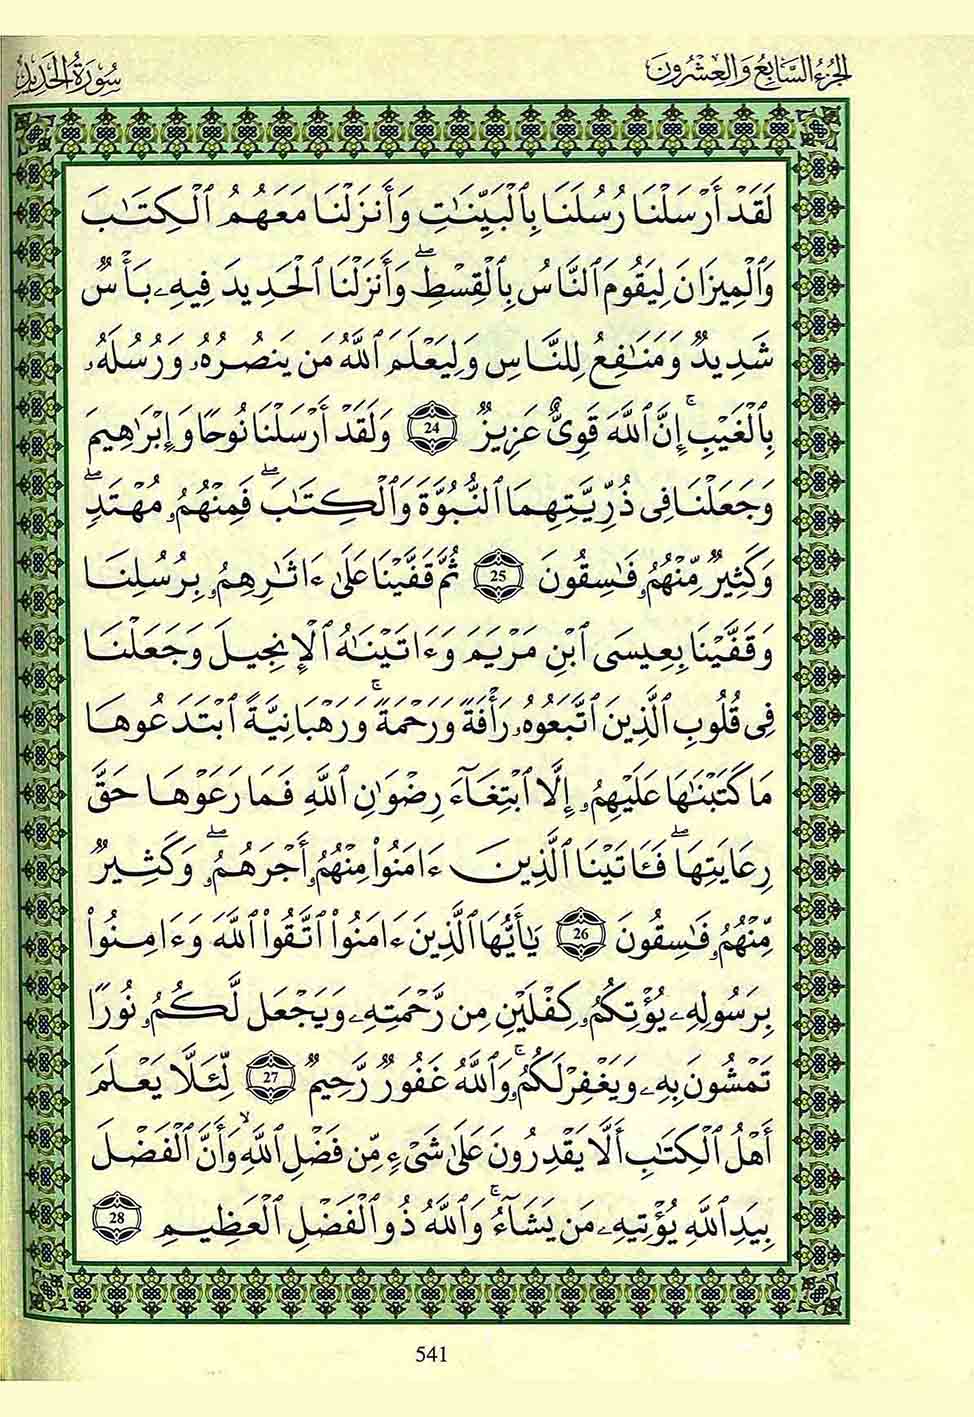 الجزء السابع والعشرون
سورة الحديد
لَقَدْ أَرْسَلْنَا رُسُلَنَا بِالْبَيِّنَٰتِ وَأَنزَلْنَا مَعَهُمُ الْكِتَٰبَ
وَالْمِيزَانَ لِيَقُومَ النَّاسُ بِالْقِسْطِۖ وَأَنزَلْنَا الْحَدِيدَ فِيهِۦ بَأْسٌ
شَدِيدٌ وَمَنَٰفِعُ لِلنَّاسِ وَلِيَعْلَمَ اللَّهُ مَن يَنصُرُهُۥ وَرُسُلَهُۥ
بِالْغَيْبِۚ إِنَّ اللَّهَ قَوِىٌّ عَزِيزٌ 24 وَلَقَدْ أَرْسَلْنَا نُوحًا وَإِبْرَٰهِيمَ
وَجَعَلْنَا فِى ذُرِّيَّتِهِمَا النُّبُوَّةَ وَالْكِتَٰبَۖ فَمِنْهُمُۥ مُهْتَدٍۖ
وَكَثِيرٌ مِّنْهُمُۥ فَٰسِقُونَ 25 ثُمَّ قَفَّيْنَا عَلَىٰ ءَاثَٰرِهِمُۥ بِرُسُلِنَا
وَقَفَّيْنَا بِعِيسَى ابْنِ مَرْيَمَ وَءَاتَيْنَٰهُ الْإِنجِيلَ وَجَعَلْنَا
فِى قُلُوبِ الَّذِينَ اتَّبَعُوهُۥ رَأْفَةً وَرَحْمَةًۚ وَرَهْبَانِيَّةً ابْتَدَعُوهَا
مَا كَتَبْنَٰهَا عَلَيْهِمُۥ إِلَّا ابْتِغَآءَ رِضْوَٰنِ اللَّهِ فَمَا رَعَوْهَا حَقَّ
رِعَايَتِهَاۖ فَـَٔاتَيْنَا الَّذِينَ ءَامَنُوا۟ مِنْهُمُۥ أَجْرَهُمُۥۖ وَكَثِيرٌ
مِّنْهُمُۥ فَٰسِقُونَ 26 يَٰٓأَيُّهَا الَّذِينَ ءَامَنُوا۟ اتَّقُوا۟ اللَّهَ وَءَامِنُوا۟
بِرَسُولِهِۦ يُؤْتِكُمُۥ كِفْلَيْنِ مِن رَّحْمَتِهِۦ وَيَجْعَل لَّكُمُۥ نُورًا
تَمْشُونَ بِهِۦ وَيَغْفِرْ لَكُمُۥۚ وَاللَّهُ غَفُورٌ رَّحِيمٌ 27 لِّئَلَّا يَعْلَمَ
أَهْلُ الْكِتَٰبِ أَلَّا يَقْدِرُونَ عَلَىٰ شَىْءٍ مِّن فَضْلِ اللَّهِۙ وَأَنَّ الْفَضْلَ
بِيَدِ اللَّهِ يُؤْتِيهِۦ مَن يَشَآءُۚ وَاللَّهُ ذُو الْفَضْلِ الْعَظِيمِ 28
541